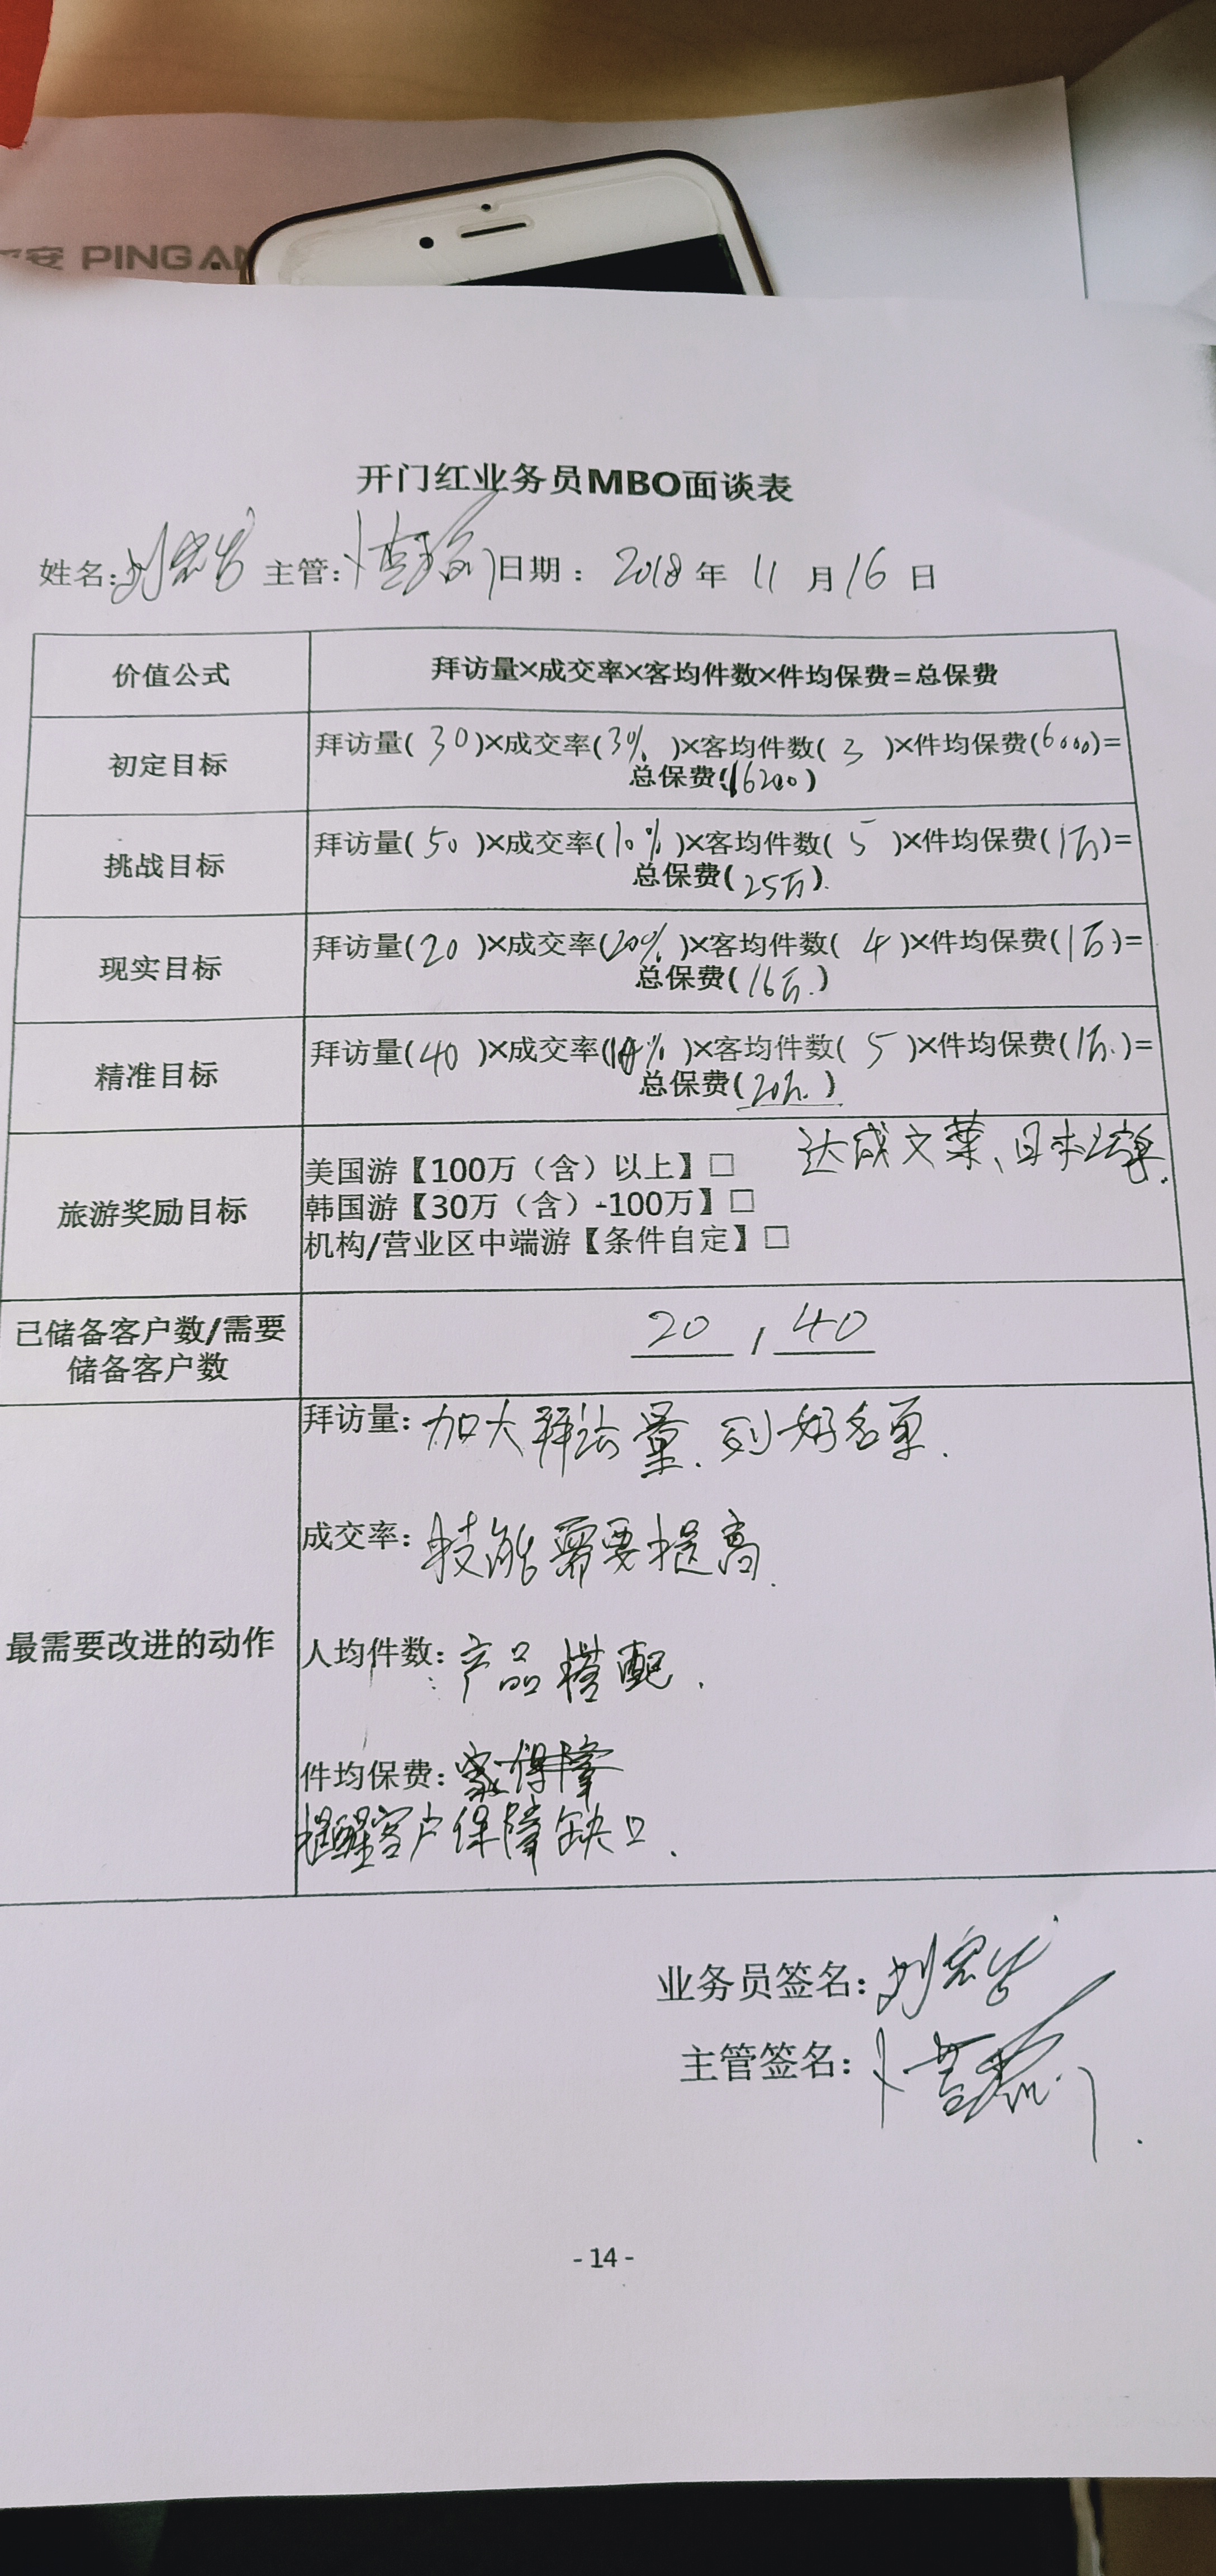 安 PING AN
开门红业务员MBO面谈表
姓名: 刘 主管: 日期: 2018 年 11 月 16 日
价值公式 拜访量×成交率×客均件数×件均保费=总保费
初定目标 拜访量( 30 )×成交率(3% )×客均件数( 3 )×件均保费(6000)=
总保费(16200)
挑战目标 拜访量( 50 )×成交率(10% )×客均件数( 5 )×件均保费(1万)=
总保费( 25万 ).
现实目标 拜访量(20 )×成交率(20% )×客均件数( 4 )×件均保费(1万)=
总保费( 16万. )
精准目标 拜访量(40 )×成交率(10% )×客均件数( 5 )×件均保费(1万. )=
总保费( 20万. )
旅游奖励目标 美国游【100万（含）以上】□ 达成文莱、日本
韩国游【30万（含）-100万】□
机构/营业区中端游【条件自定】□
已储备客户数/需要
储备客户数
20 / 40
最需要改进的动作
拜访量: 加大拜访量. 列好名单.
成交率: 技能需要提高.
人均件数: 产品搭配.
件均保费:
提醒客户保障缺口.
业务员签名: 刘
主管签名:
- 14 -